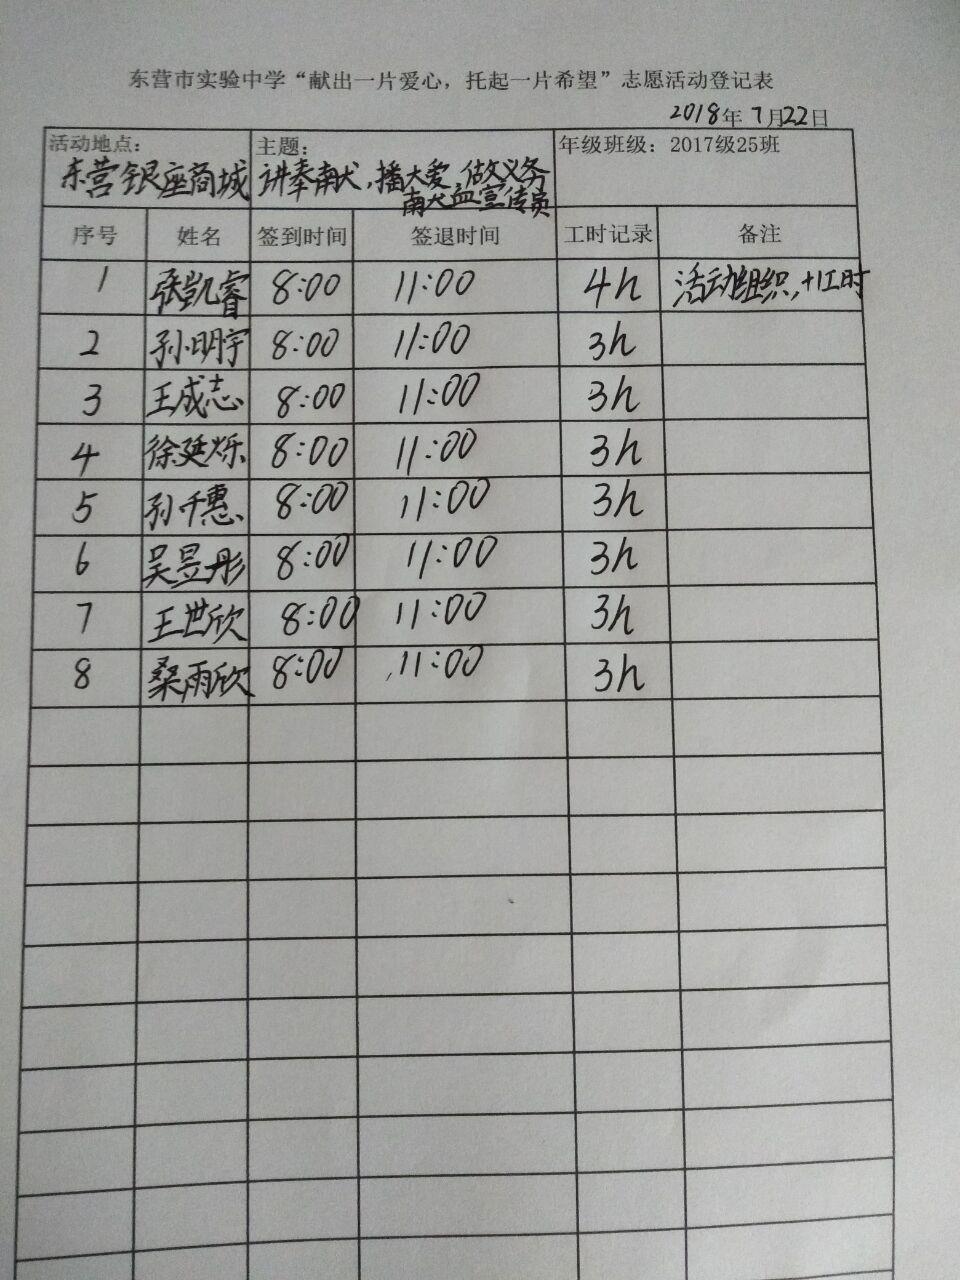 东营市实验中学“献出一片爱心，托起一片希望”志愿活动登记表
2018年7月22日
活动地点：东营银座商城 主题：讲奉献，播大爱，做义务献血宣传员 年级班级：2017级25班
序号 姓名 签到时间 签退时间 工时记录 备注
1 张凯睿 8:00 11:00 4h 活动组织，+1工时
2 孙明宇 8:00 11:00 3h
3 王成志 8:00 11:00 3h
4 徐延烁 8:00 11:00 3h
5 孙千惠 8:00 11:00 3h
6 吴昱彤 8:00 11:00 3h
7 王世欣 8:00 11:00 3h
8 桑雨欣 8:00 11:00 3h